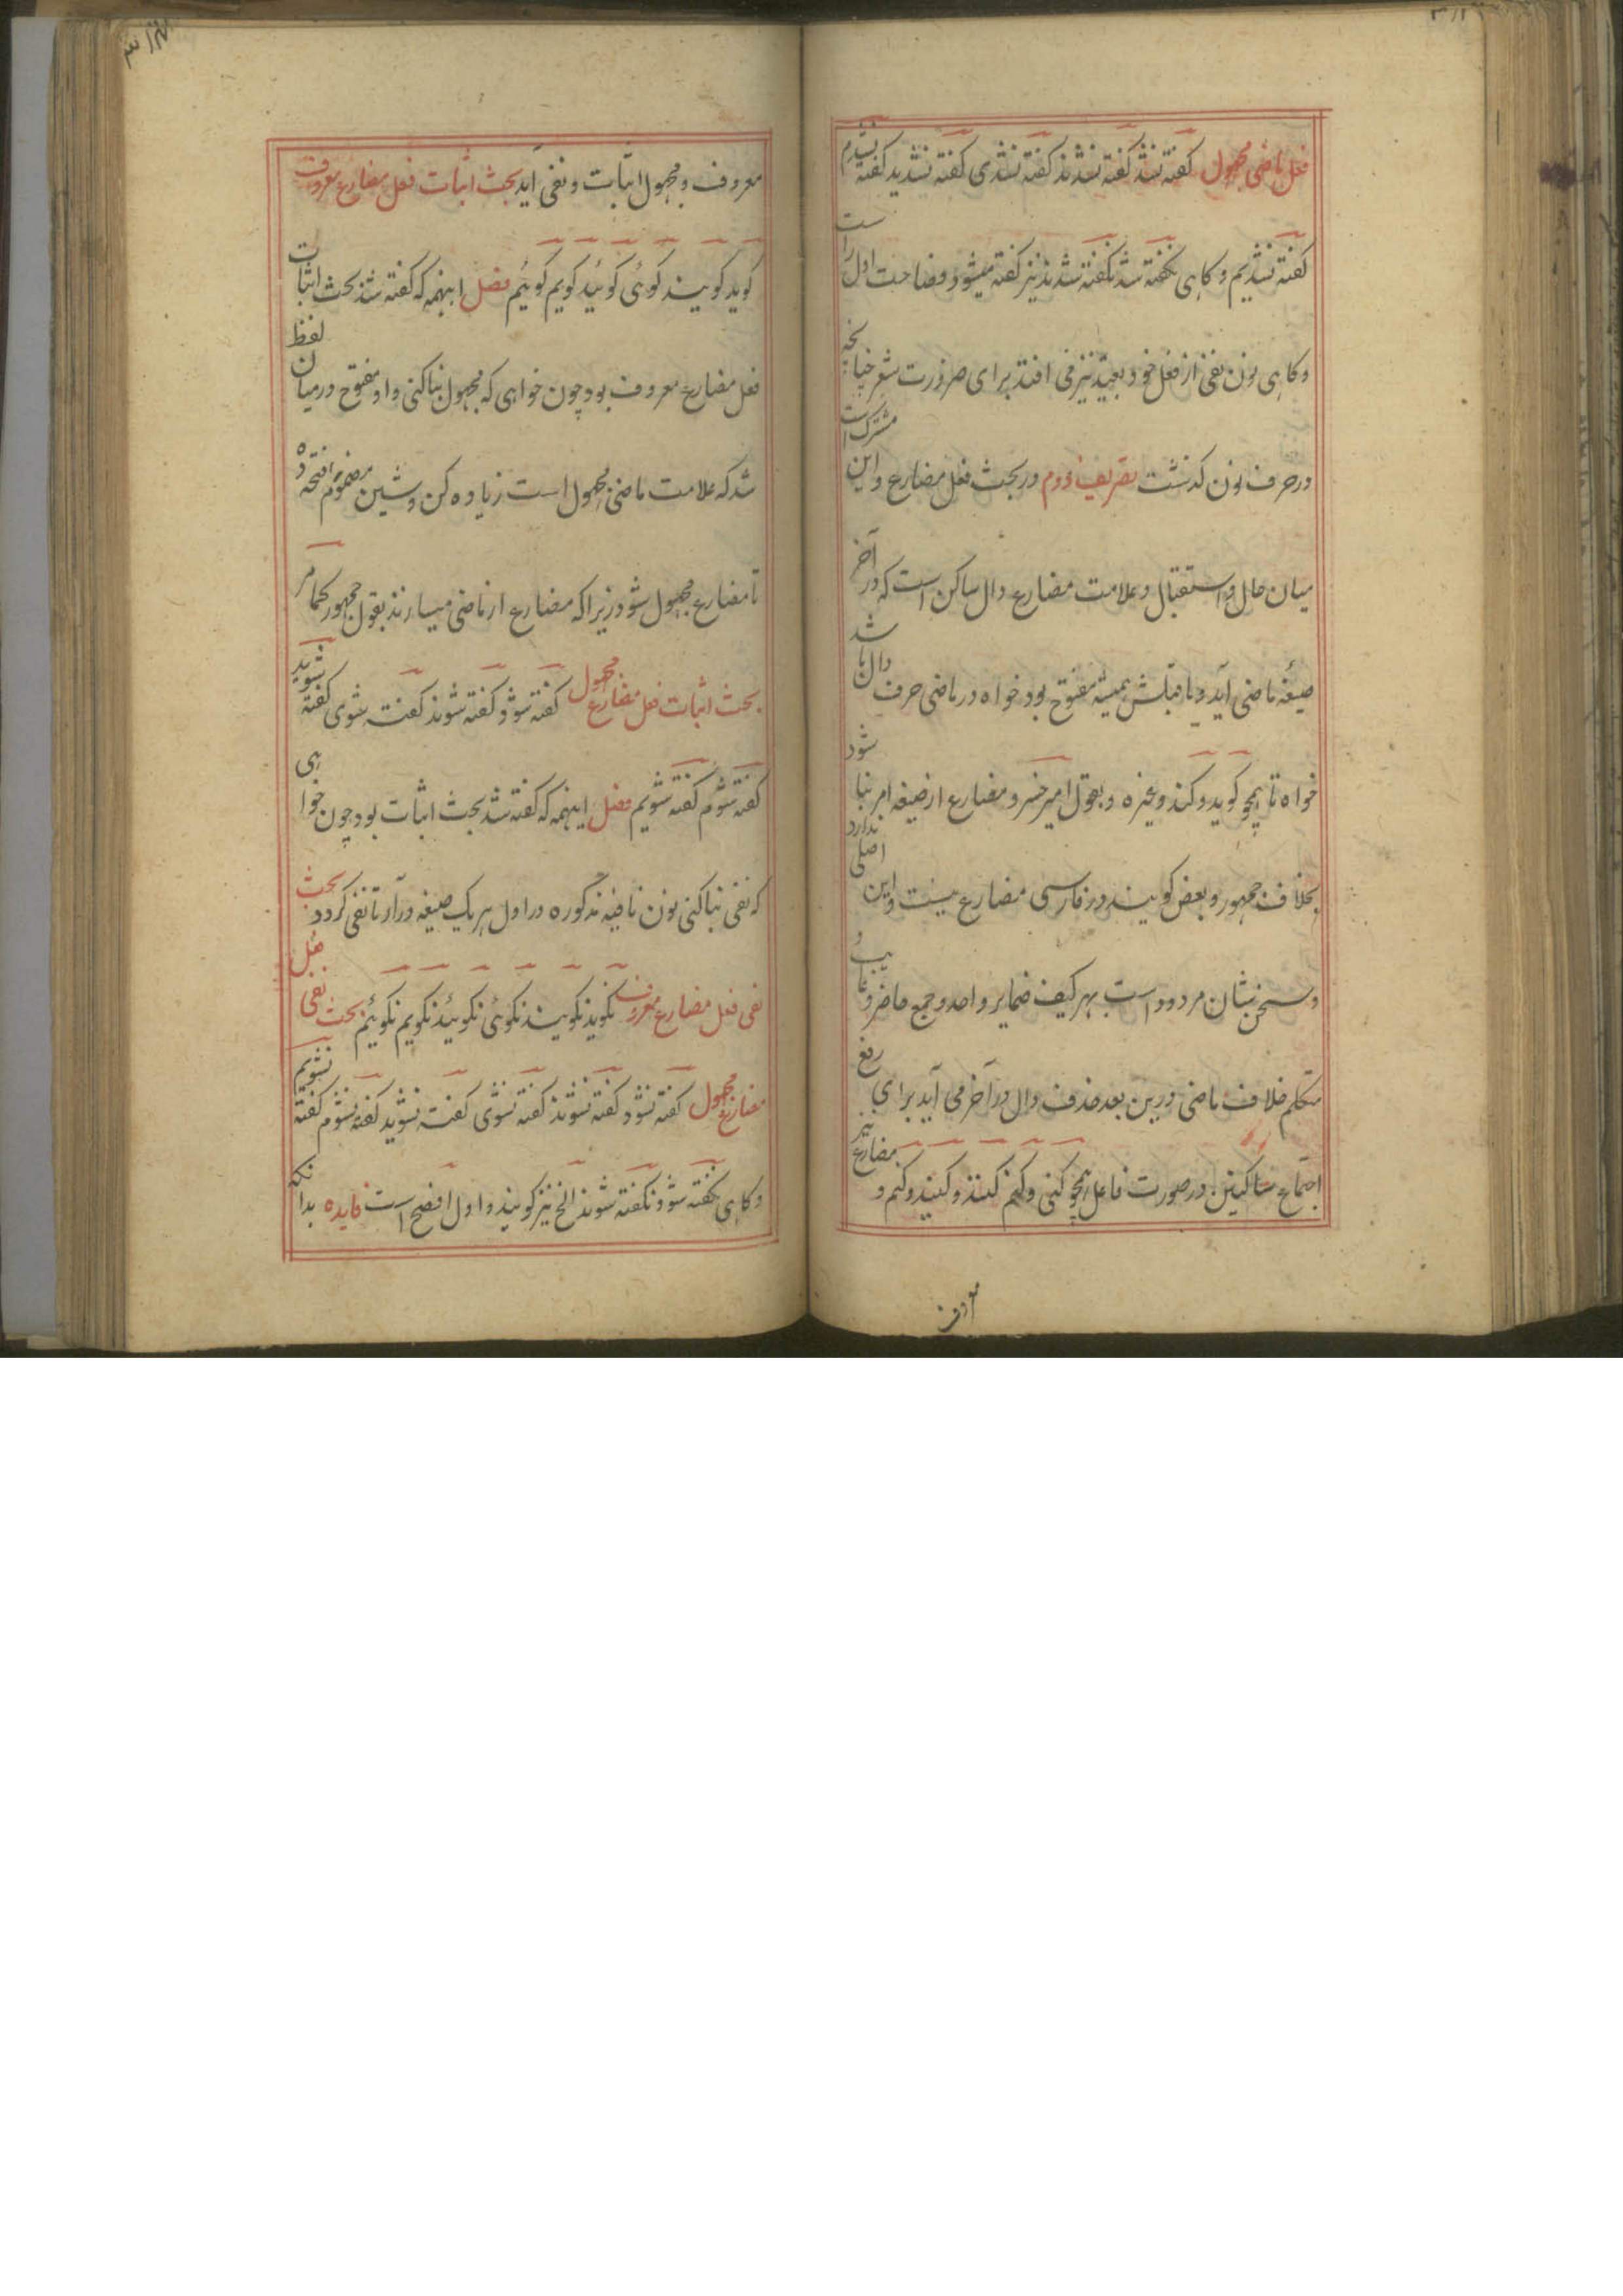 فعل ماضی مجهول کفته نشد کفته نشدند کفته نشدی کفته نشدید کفته نشدم
کفته نشدیم و کاهی نکفته شد نکفته شدند نیز کفته میشود و فصاحت اول راست
و کاهی نون نفی از فعل خود بعید نیز می افتد برای ضرورت شعر چنانچه
در حرف نون کذشت تصریف دوم در بحث فعل مضارع و این مشترک است
میان حال و استقبال و علامت مضارع دال ساکن است که در آخر
صیغهٔ ماضی آید و ماقبلش همیشه مفتوح بود خواه در ماضی حرف دال باشد
خواه تا همچو کوید و کند و غیره و بقول امیر خسرو مضارع از صیغه امر بنا شود
بخلاف جمهور و بعض کویند در فارسی مضارع نیست و این اصلی ندارد
و سخن شان مردود است بهر کیف ضمایر واحد و جمع حاضر و غایب و
متکلم خلاف ماضی درین بعد حذف دال در آخر می آید برای رفع
اجتماع ساکنین در صورت فاعل همچو کنی و کنم کنند و کنید و کنیم و مضارع نیز
معروف و مجهول اثبات و نفی آید بحث اثبات فعل مضارع معروف
کوید کویند کوئی کوئید کویم کوئیم فصل اینهمه که کفته شد بحث اثبات
فعل مضارع معروف بود چون خواهی که مجهول بنا کنی واو مفتوح درمیان لفظ
شد که علامت ماضی مجهول است زیاده کن و شین مضموم را فتحه ده
تا مضارع مجهول شود زیرا که مضارع از ماضی میسازند بقول جمهور کما مر
بحث اثبات فعل مضارع مجهول کفته شود کفته شوند کفته شوی کفته شوید
کفته شوم کفته شویم فصل اینهمه که کفته شد بحث اثبات بود چون خواهی
که نفی بنا کنی نون نافیه مذکوره در اول هر یک صیغه درآر تا نفی کردد بحث
نفی فعل مضارع معروف نکوید نکویند نکوئی نکوئید نکویم نکوئیم بحث نفی فعل
مضارع مجهول کفته نشود کفته نشوند کفته نشوی کفته نشوید کفته نشوم کفته نشویم
و کاهی نکفته شود نکفته شوند الخ نیز کویند و اول افصح است فایده بدانکه